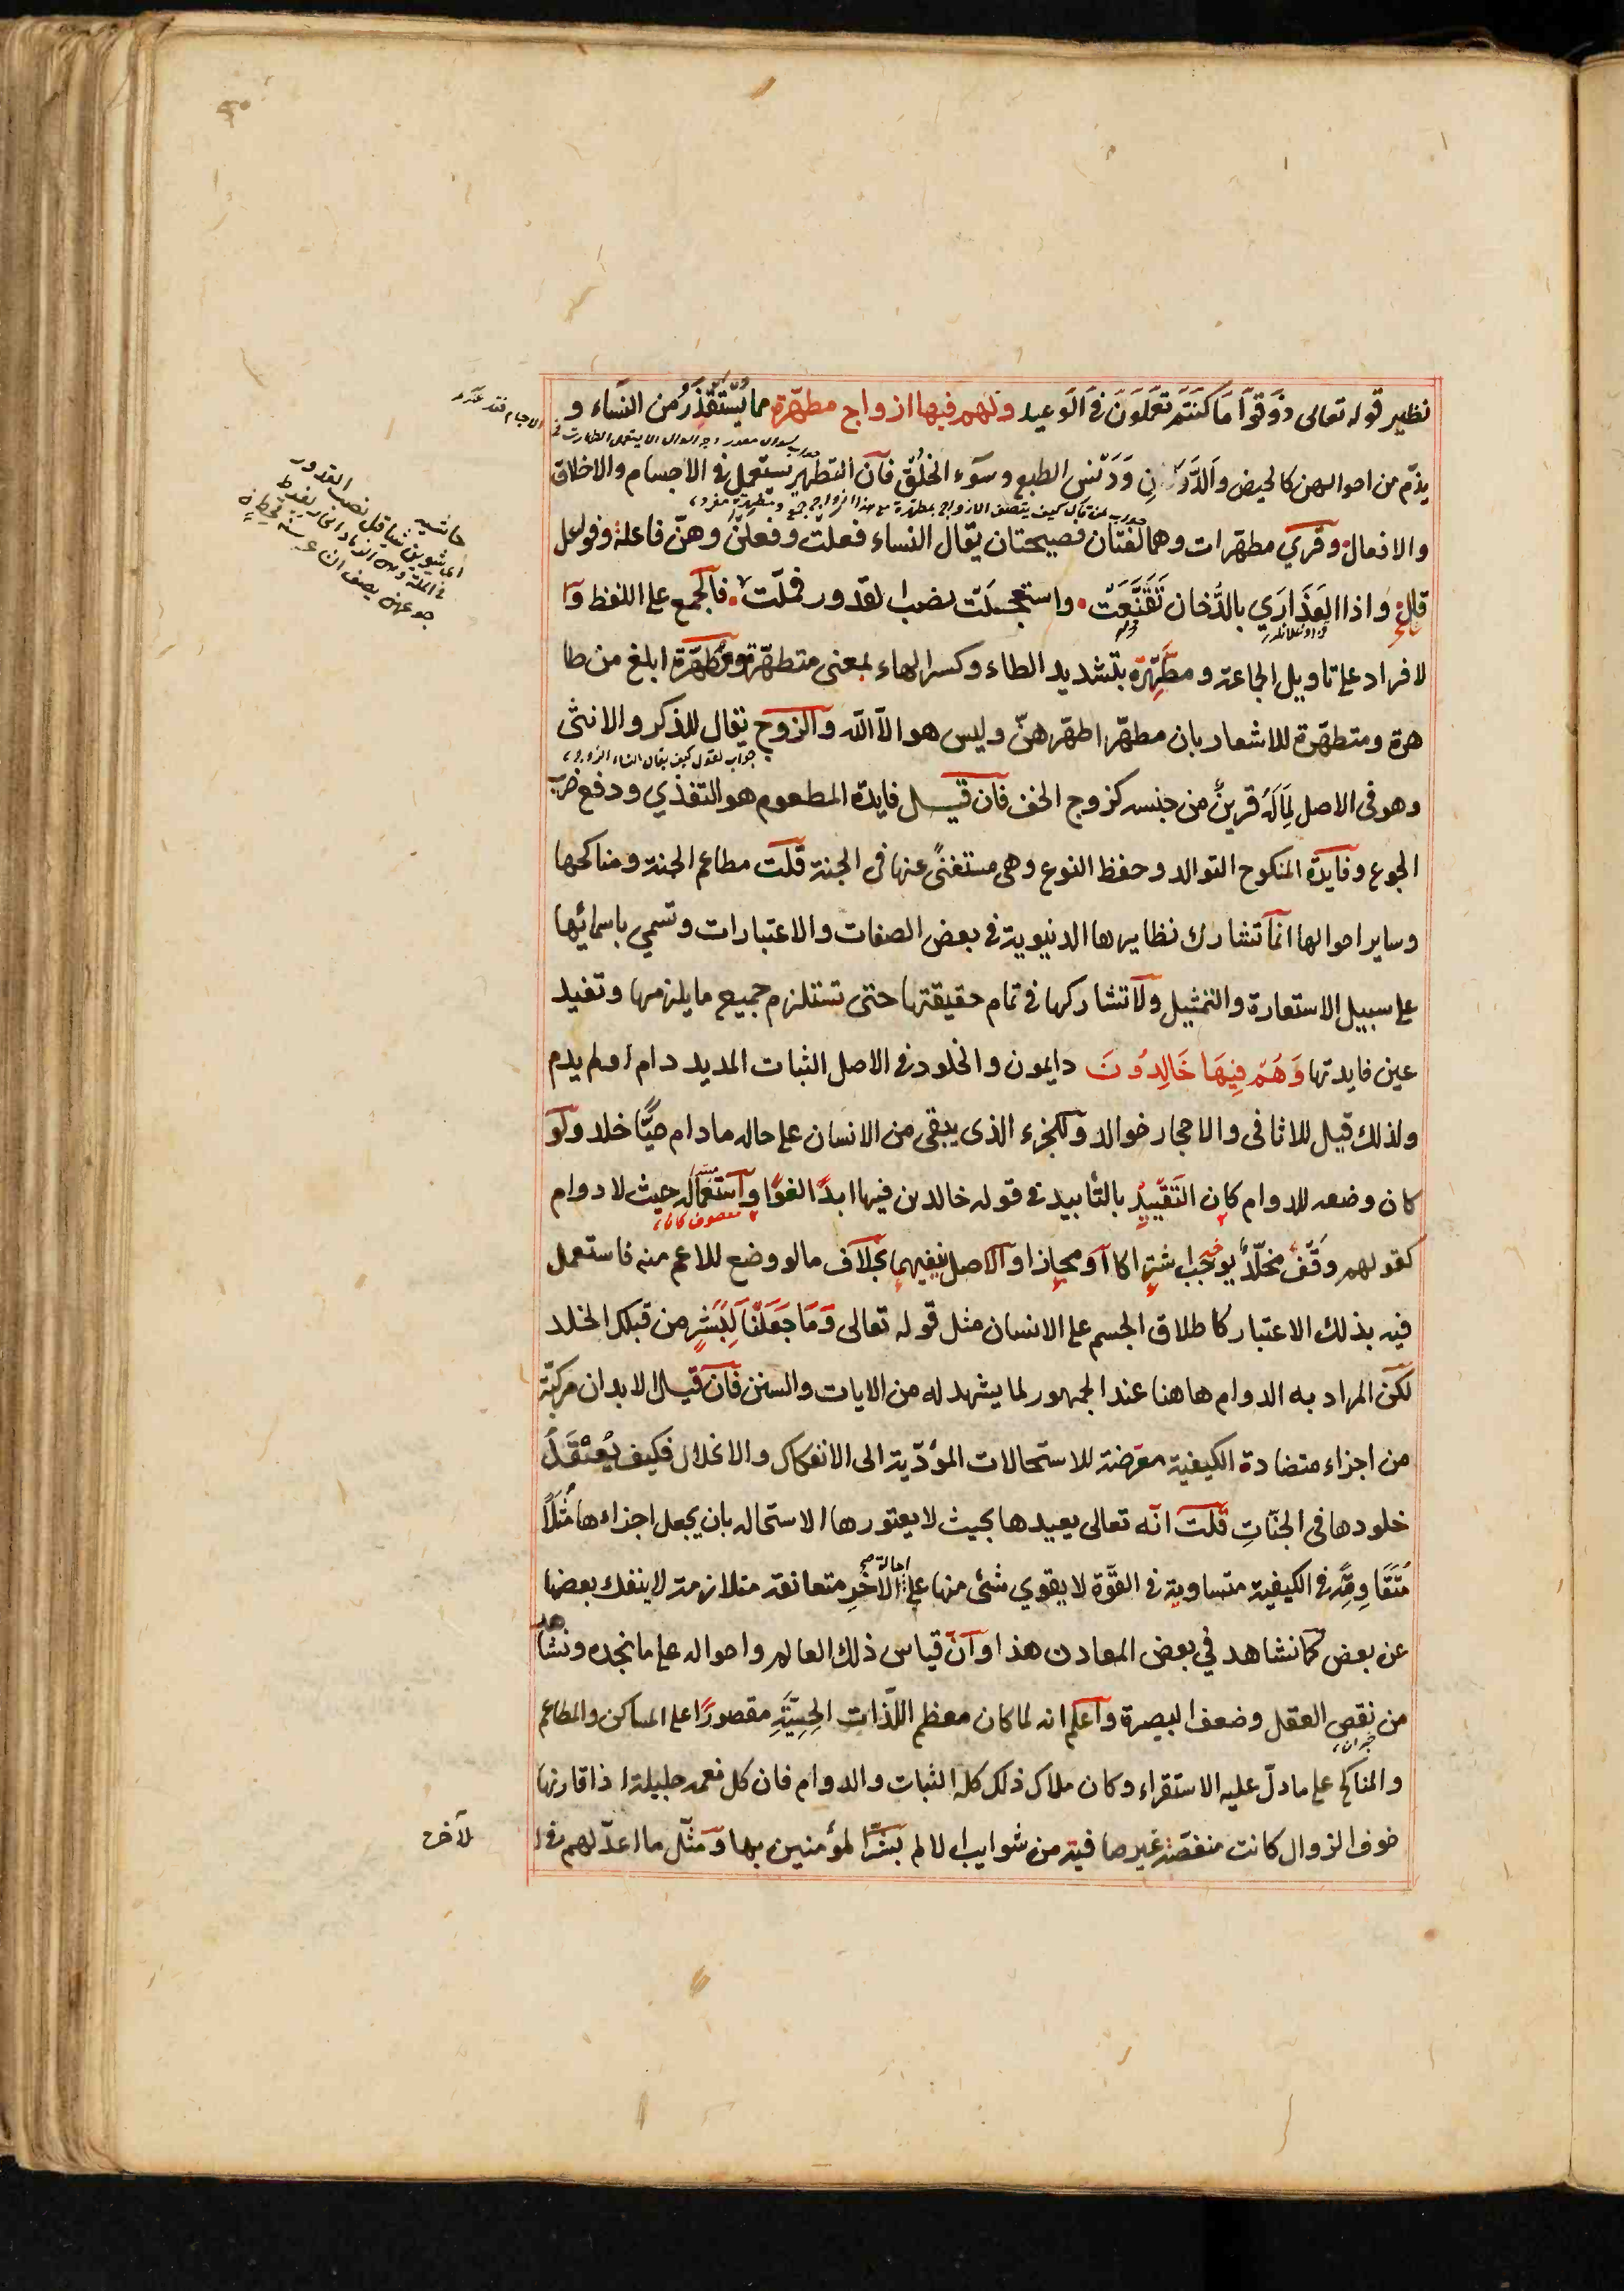 نظير قوله تعالى ذوقوا ما كنتم تعملون في الوعيد ولهم فيها ازواج مطهّرة مما يُسْتَقْذَرُ من النساء و
يذمّ من احوالهن كالحيض والدَّرَنِ وَدَنَس الطبع وسوء الخُلُق فان التطهير يستعمل في الاجسام والاخلاق
والافعال وقري مطهّرات وهما لغتان فصيحتان يقال النساء فعلت وفعلنَ وهنّ فاعلة وفواعل
قال واذا العَذَارَي بالدُّخان تَقَنَّعَت واستعجلت نصب القدور فملّت فالجمع على اللفظ وا
لافراد على تاويل الجماعة ومطَّهِّرة بتشديد الطاء وكسر الهاء بمعنى متطهّرة ومطهّرة ابلغ من طا
هرة ومتطهّرة للاشعار بان مطهّرا طهّرهنّ وليس هو الاّ الله والزوج يقال للذكر والانثى
وهو في الاصل لِمَا لَهُ قرينٌ من جنسه كزوج الخف فان قيل فايدة المطعوم هو التغذي ودفع ضرر
الجوع وفايدة المنكوح التوالد وحفظ النوع وهي مستغنىً عنها في الجنة قلت مطاعم الجنة ومناكحها
وساير احوالها انما تشارك نظايرها الدنيوية في بعض الصفات والاعتبارات وتسمي باسمائها
على سبيل الاستعارة والتمثيل ولا تشاركها في تمام حقيقتها حتى تستلزم جميع ما يلزمها وتفيد
عين فايدتها وَهُمْ فِيهَا خَالِدُونَ دايمون والخلود في الاصل الثبات المديد دام او لم يدم
ولذلك قيل للاثافي والاحجار خوالد وللجزء الذي يبقى من الانسان على حاله مادام حيًّا خلد ولو
كان وضعه للدوام كان التَقْييد بالتأبيد في قوله خالدين فيها ابدًا لغوًا واستعماله حيث لا دوام
كقولهم وَقْفٌ مخلّدٌ يوجب اشتراكا او مجازا والاصل ينفيهما بخلاف مالو وضع للاعم منه فاستعمل
فيه بذلك الاعتبار كاطلاق الجسم على الانسان مثل قوله تعالى وَمَا جَعَلْنَا لِبَشَرٍ من قبلك الخلد
لكن المراد به الدوام هاهنا عند الجمهور لما يشهد له من الايات والسنن فان قيل الابدان مركبّة
من اجزاء متضادة الكيفية معرّضة للاستحالات المؤدّية الى الانفكاك والانحلال فكيف يُعْقَلُ
خلودها في الجنّاتِ قلت انّه تعالى يعيدها بحيث لا يعتورها الاستحالة بان يجعل اجزاءها مثلاً
مُتَقَاوِمَةً في الكيفية متساوية في القوّة لا يقوي شئ منها على احالة الآخَرِ متعانقة متلازمة لا ينفك بعضها
عن بعض كما نشاهد في بعض المعادن هذا وان قياس ذلك العالم واحواله على ما نجده ونشاهد
من نقص العقل وضعف البصيرة واعلم انه لما كان معظم اللّذات الحِسِّيَّةِ مقصورًا على المساكن والمطاعم
والمناكح على ما دلّ عليه الاستقراء وكان ملاك ذلك كله الثبات والدوام فان كل نعمة جليلة اذا قارنها
خوف الزوال كانت منغصّة غير صافية من شوايب الالم بشّر المؤمنين بها ومَثّل ما اعدّ لهم في ا
لآخرة